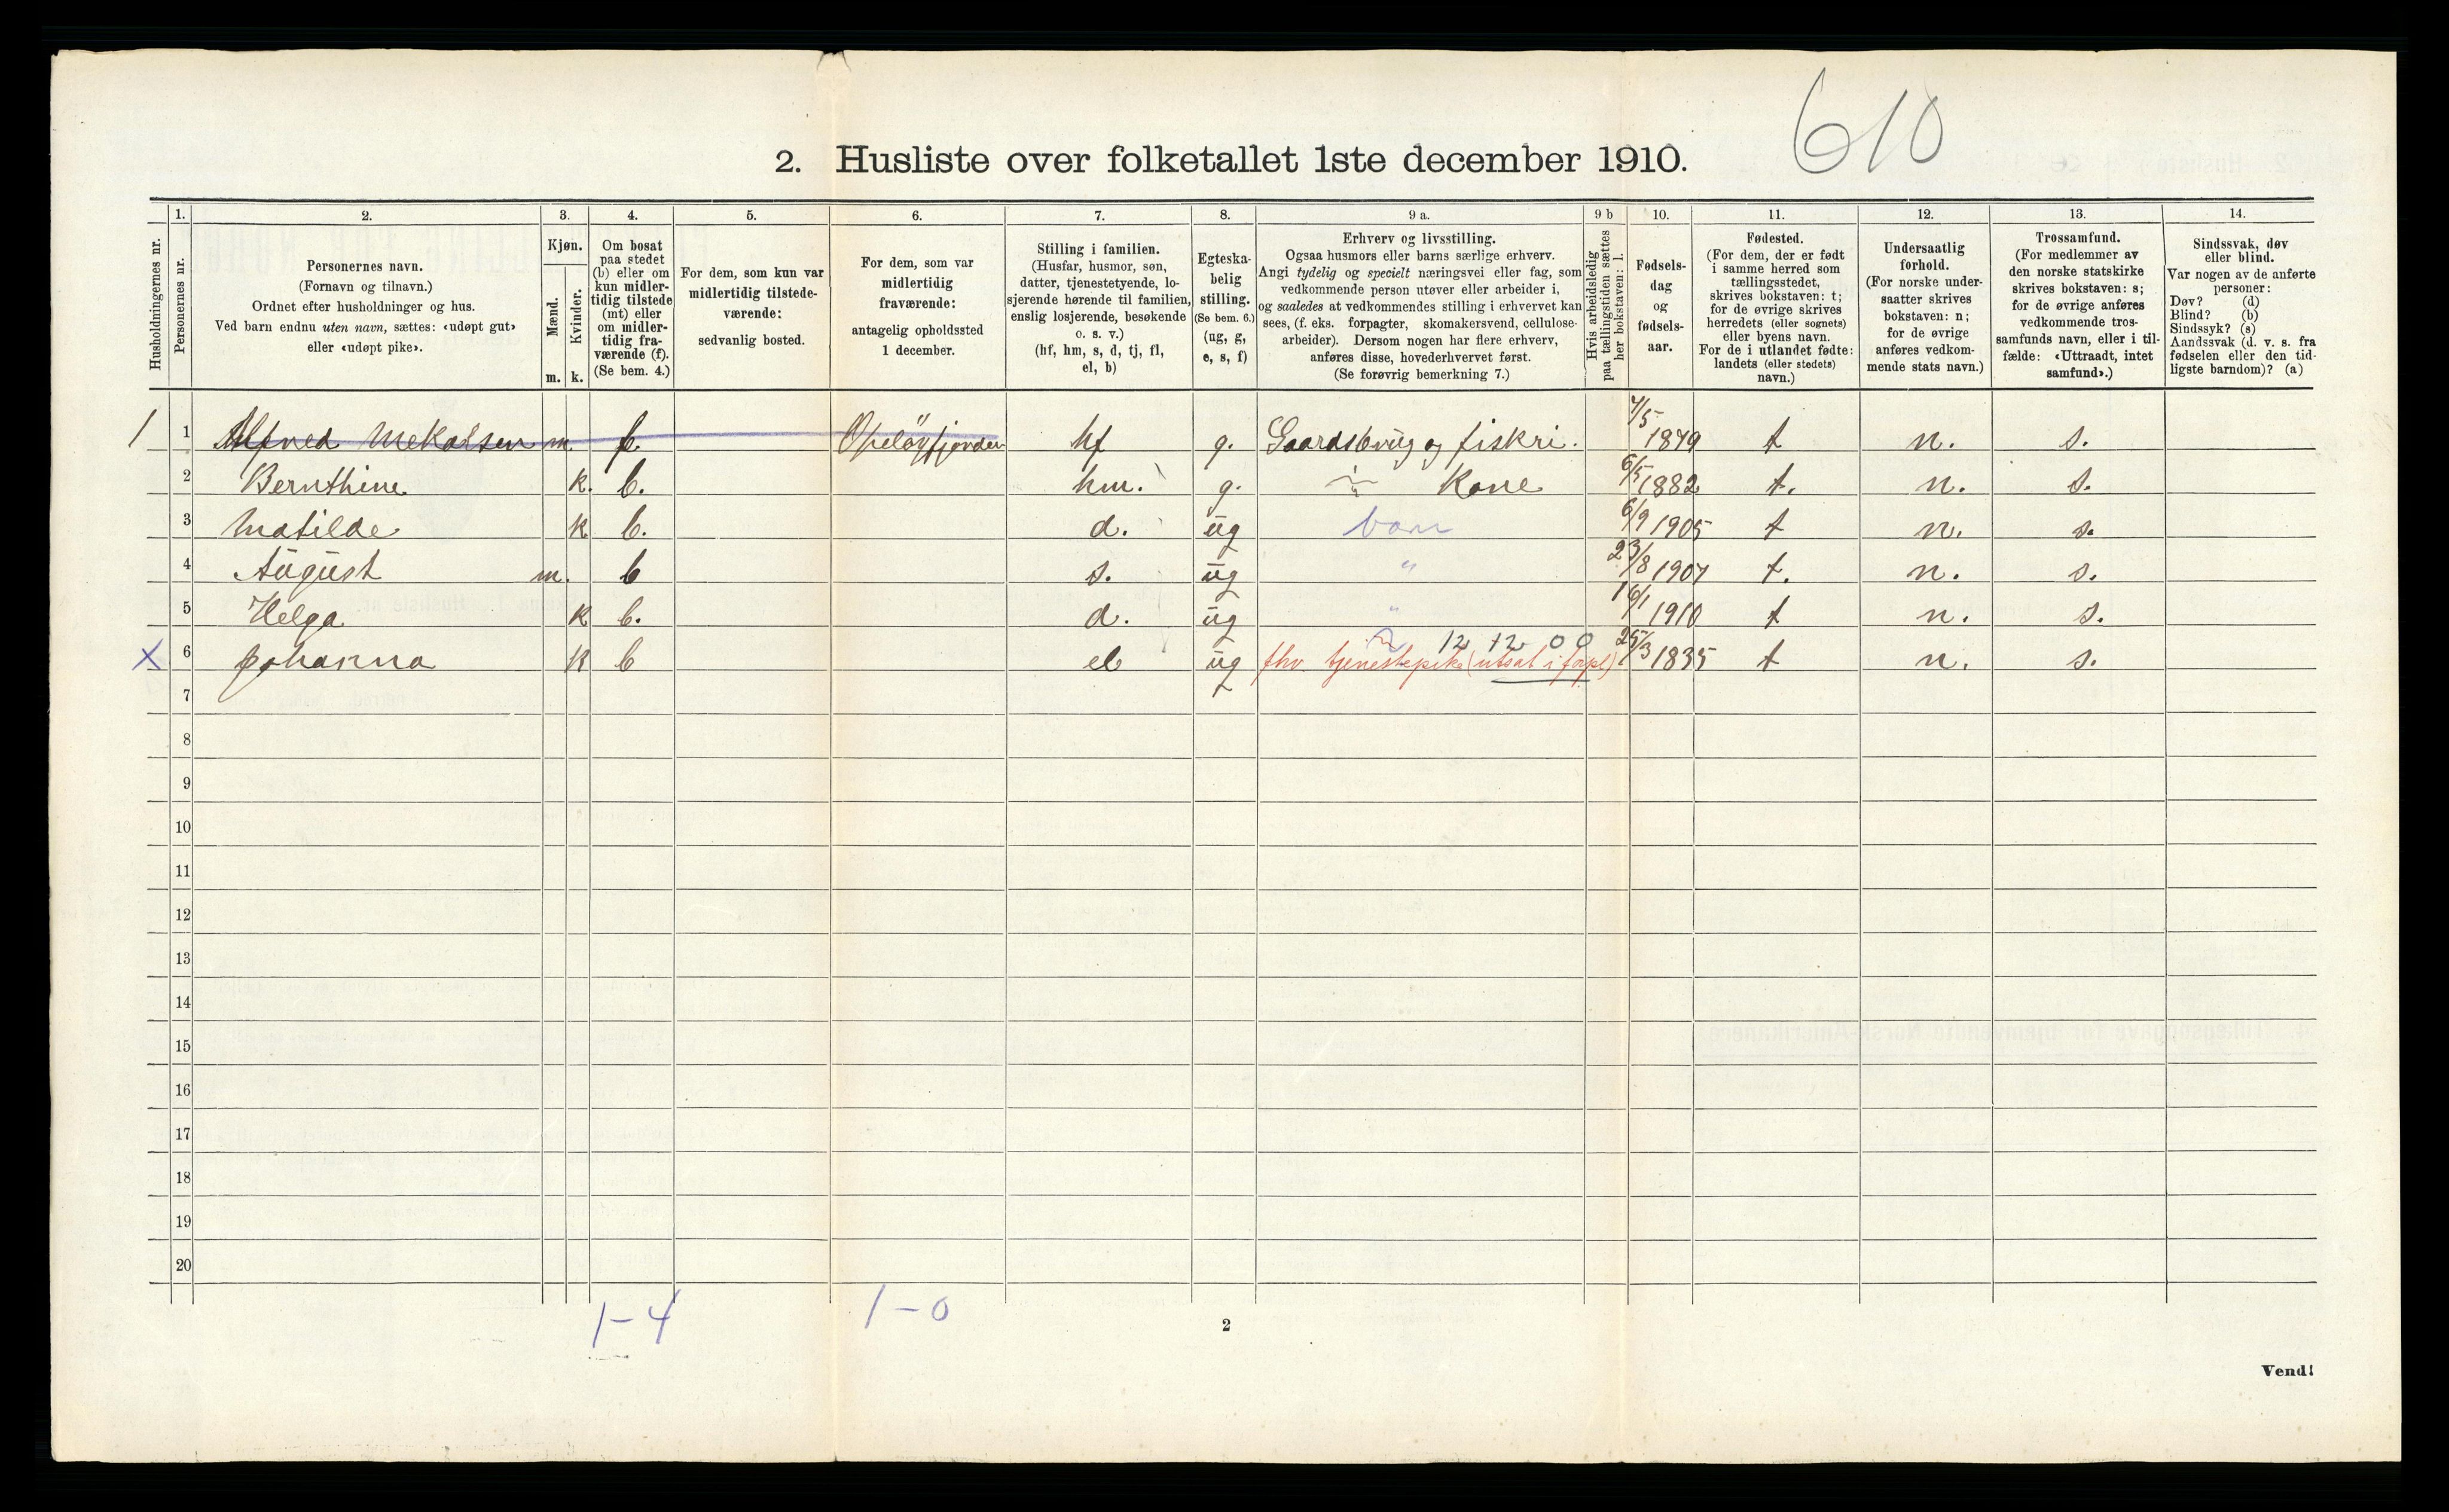 610
2. Husliste over folketallet 1ste december 1910.
Husholdningernes nr.
1.
Personernes nr.
2.
Personernes navn.
(Fornavn og tilnavn.)
Ordnet efter husholdninger og hus.
Ved barn endnu uten navn, sættes: «udøpt gut»
eller «udøpt pike».
3.
Kjøn.
Mænd.
Kvinder.
m. k.
4.
Om bosat
paa stedet
(b) eller om
kun midler-
tidig tilstede
(mt) eller
om midler-
tidig fra-
værende (f).
(Se bem. 4.)
5.
For dem, som kun var
midlertidig tilstede-
værende:
sedvanlig bosted.
6.
For dem, som var
midlertidig
fraværende:
antagelig opholdssted
1 december.
7.
Stilling i familien.
(Husfar, husmor, søn,
datter, tjenestetyende, lo-
sjerende hørende til familien,
enslig losjerende, besøkende
o. s. v.)
(hf, hm, s, d, tj, fl,
el, b)
8.
Egteska-
belig
stilling.
(Se bem. 6.)
(ug, g,
e, s, f)
9 a.
Erhverv og livsstilling.
Ogsaa husmors eller barns særlige erhverv.
Angi tydelig og specielt næringsvei eller fag, som
vedkommende person utøver eller arbeider i,
og saaledes at vedkommendes stilling i erhvervet kan
sees, (f. eks. forpagter, skomakersvend, cellulose-
arbeider). Dersom nogen har flere erhverv,
anføres disse, hovederhvervet først.
(Se forøvrig bemerkning 7.)
9 b
Hvis arbeidsledig
paa tællingstiden sættes
her bokstaven: l.
10.
Fødsels-
dag
og
fødsels-
aar.
11.
Fødested.
(For dem, der er født
i samme herred som
tællingsstedet,
skrives bokstaven: t;
for de øvrige skrives
herredets (eller sognets)
eller byens navn.
For de i utlandet fødte:
landets (eller stedets)
navn.)
12.
Undersaatlig
forhold.
(For norske under-
saatter skrives
bokstaven: n;
for de øvrige
anføres vedkom-
mende stats navn.)
13.
Trossamfund.
(For medlemmer av
den norske statskirke
skrives bokstaven: s;
for de øvrige anføres
vedkommende tros-
samfunds navn, eller i til-
fælde: «Uttraadt, intet
samfund».)
14.
Sindssvak, døv
eller blind.
Var nogen av de anførte
personer:
Døv? (d)
Blind? (b)
Sindssyk? (s)
Aandssvak (d. v. s. fra
fødselen eller den tid-
ligste barndom)? (a)
1 1 Alfred m. f. hf g. Gaardsbrug og fiskri. 7/5 1879 t n. s.
2 Bernthine k. b. hm. g. Kone 6/5 1882 t. n. s.
3 Matilde k b. d. ug barn 6/9 1905 t n. s.
4 August m. b s. ug " 23/8 1907 t. n. s.
5 Helga k b. d. ug " 16/1 1910 t n. s.
12 12 0 0
X 6 Johanna k b el ug fhv. tjenestepike (utsat i forpl) 25/3 1835 t n. s.
7
8
9
10
11
12
13
14
15
16
17
18
19
20
1-4
1-0
2
Vend!